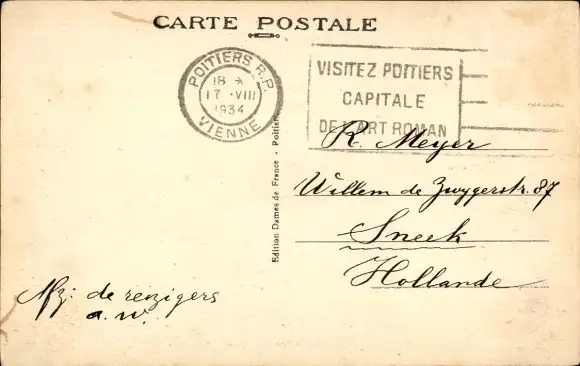 CARTE POSTALE
POITIERS R.P.
18 *
17 · VIII
1934
VIENNE
VISITEZ POITIERS
CAPITALE
DE L'ART ROMAN
R. Meyer
Willem de Zwygerstr. 87
Sneek
Hollande
Edition Dames de France - Poitiers
Afz: de reizigers
a.w.